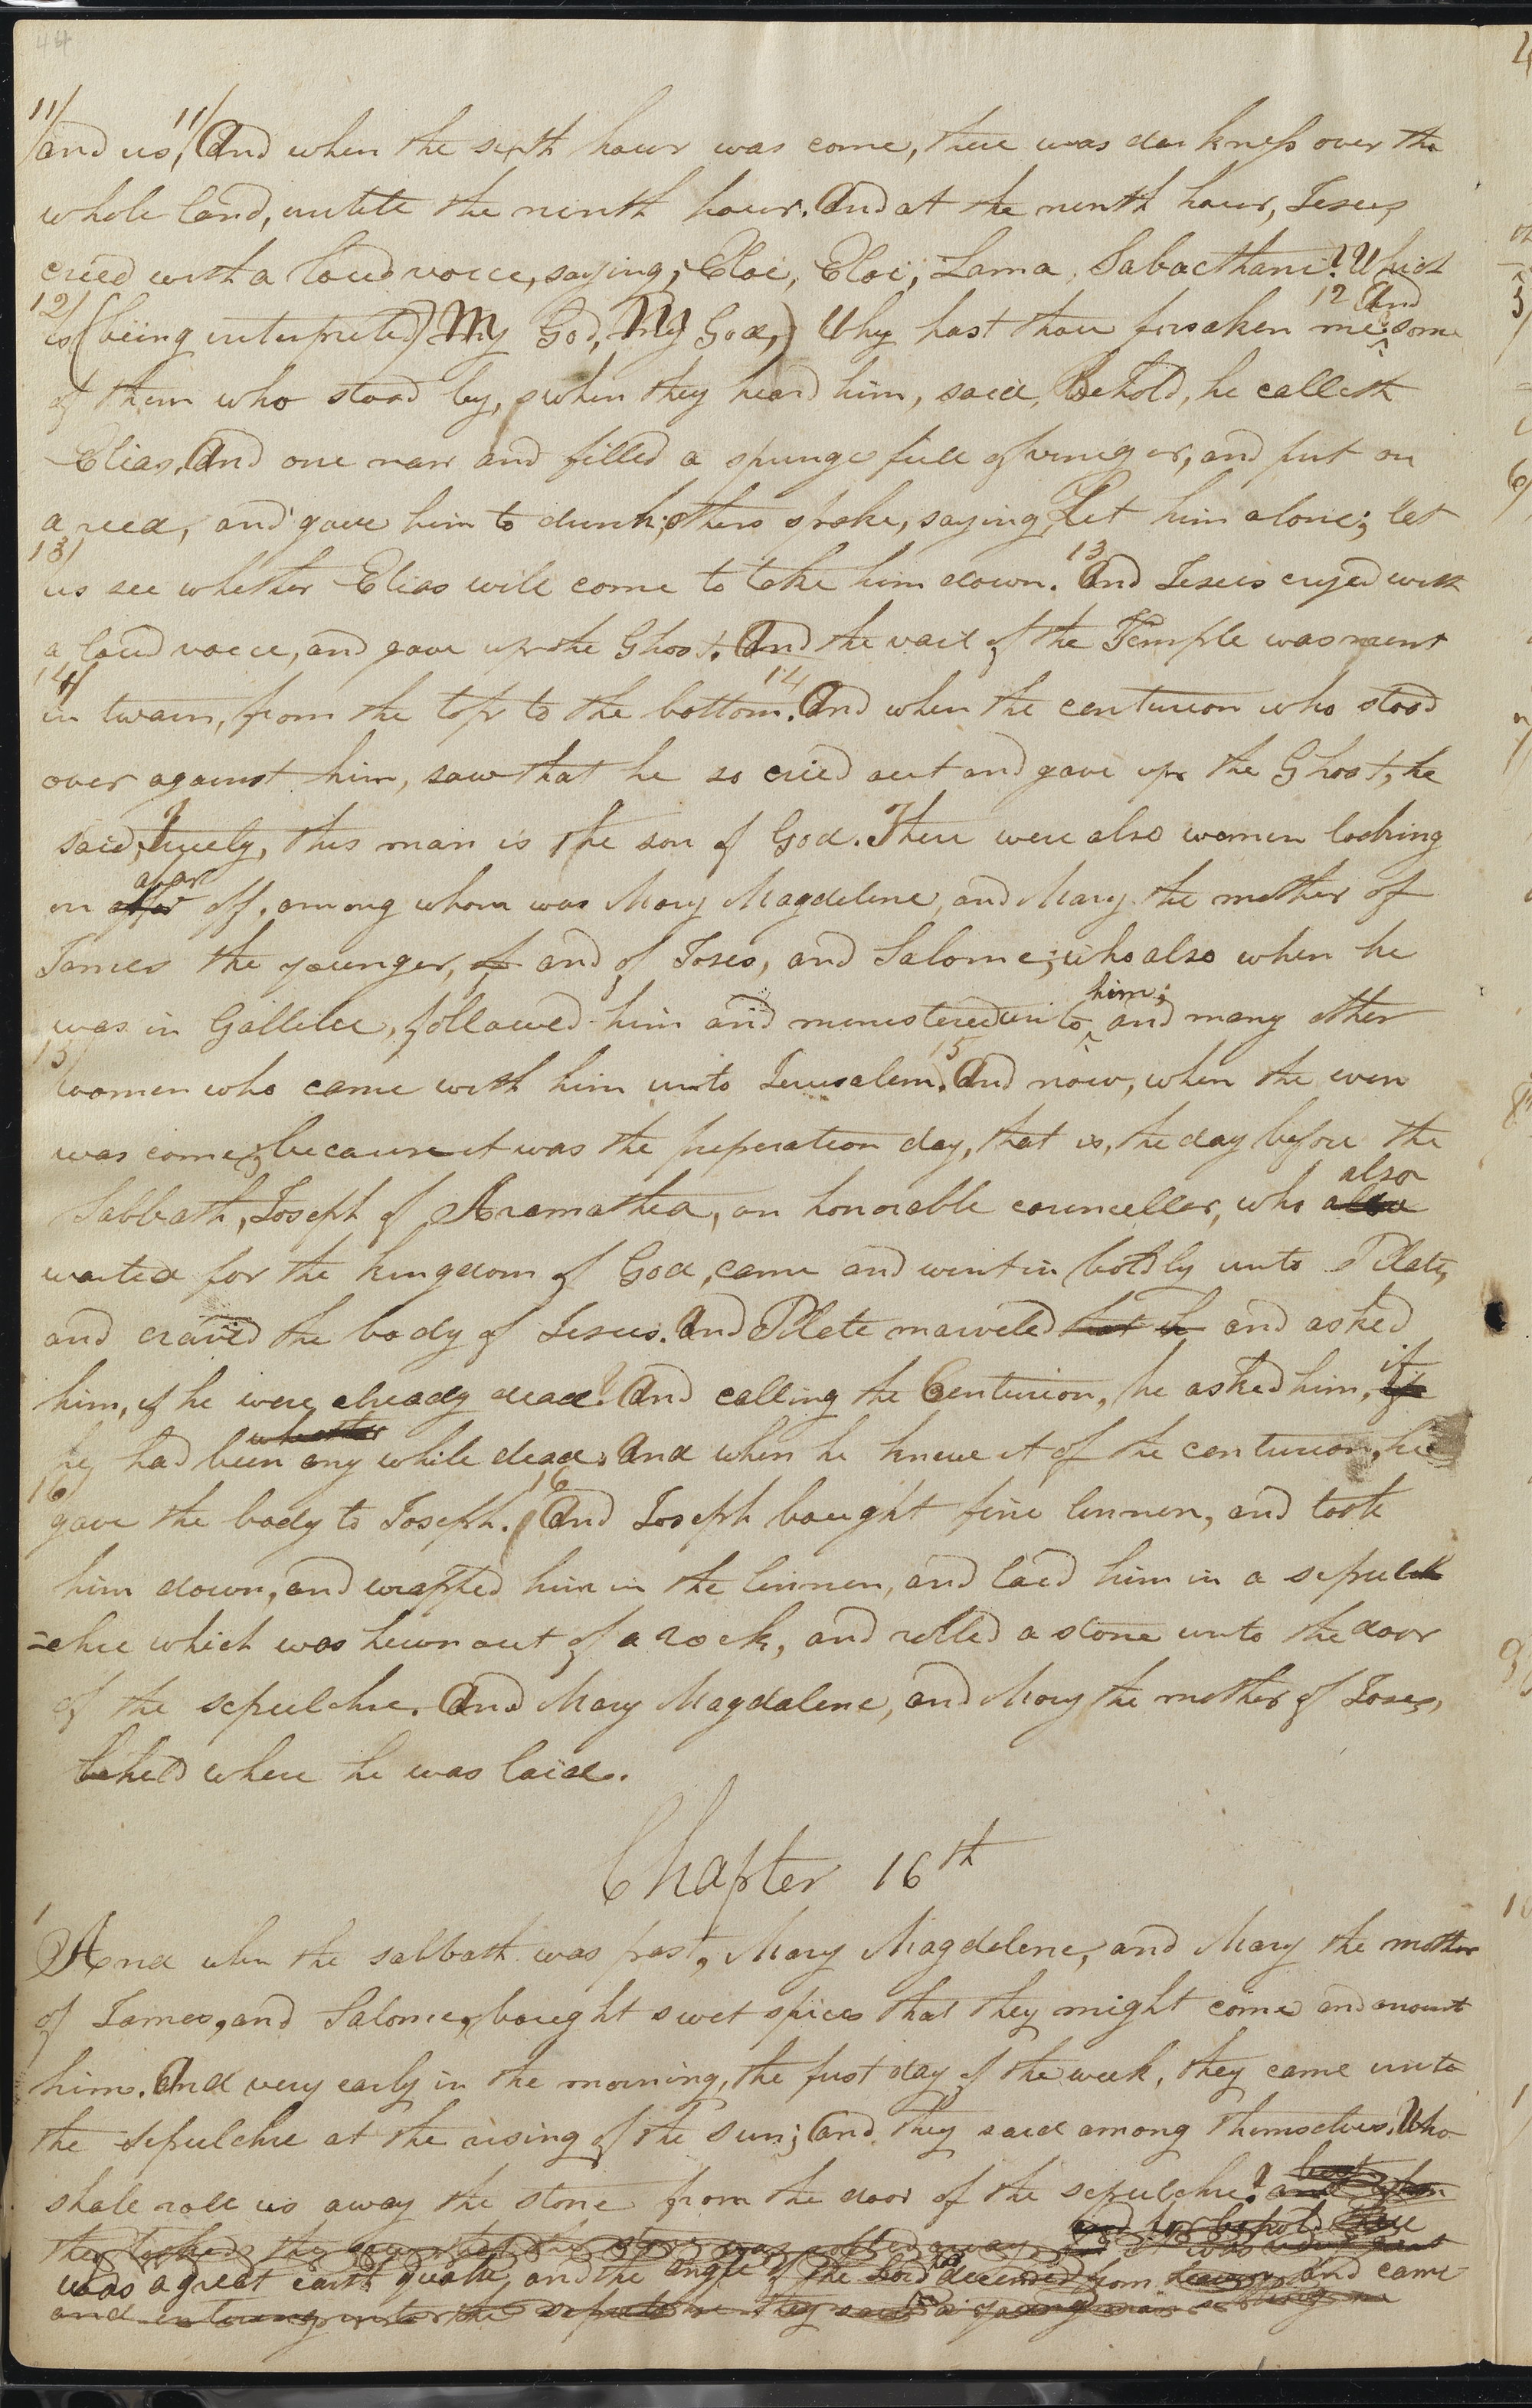 44
11/ and us; 11/ And when the sixth hour was come, there was darkness over the
whole land, untill the ninth hour. And at the ninth hour, Jesus,
cried with a loud voice, saying; Eloi, Eloi, Lama, Sabacthani? Which
12 And
12/ is (being interpreted) My God, My God,) Why hast thou forsaken me; some
of them who stood by, when they heard him, said, Behold, he calleth
Elias, And one ran and filled a spunge full of viniger, and put on
a reed, and gave him to drink; others spoke, saying, Let him alone; let
13/ us see whether Elias will come to take him down. 13 And Jesus cryed with
a loud voice, and gave up the Ghost. And the vail of the Temple was rent
14/ in twain, from the top to the bottom. 14 And when the centurion who stood
over against him, saw that he so cried out and gave up the Ghost, he
said, Truely, this man is the son of God. There were also women looking
afar
on afar off, among whom was Mary Magdelene, and Mary the mother of
James the younger, of and of Joses, and Salome; who also when he
him;
was in Gallilee, followed him and ministered unto and many other
15/ women who came with him unto Jerusalem. 15 And now, when the even
was come, because it was the preperation day, that is, the day before the
also
Sabbath, Joseph of Aramathea, an honorable councellor, who allso
waited for the kingdom of God, came and went in boldly unto Pilate,
and craved the body of Jesus. And Pilate marveled that he and asked
if
him, if he were already dead? And calling the Centurion, he asked him, if
whether
he had been any while dead. And when he knew it of the centurion, he
16/ gave the body to Joseph. 16 And Joseph bought fine linnen, and took
him down, and wrapped him in the linnen, and laid him in a sepul
=chre which was hewn out of a rock, and rolled a stone unto the door
of the sepulchre. And Mary Magdalene, and Mary the mother of Joses,
beheld where he was laid.
Chapter 16th
1
And when the sabbath was past, Mary Magdelene, and Mary the mother
of James, and Salome, bought swet spices that they might come and anoint
him. And very early in the morning, the first day of the week, they came unto
the sepulchre at the rising of the sun; and they said among themselves, Who
but
shall roll us away the stone from the door of the sepulchre? and when
and lo, behold there
they looked, they saw that the stone was rolled away for it was very great
was a great earth quake, and the angle of the Lord decended from heaven and came
and entering into the sepulchre they saw a young man sitting on